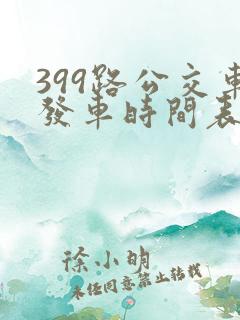 399路公交車
發車時間表
徐小明
未经同意禁止转载